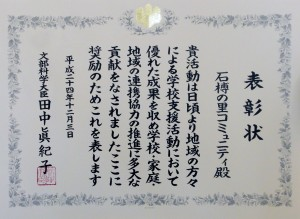 表彰状
石榑の里コミュニティ殿
貴活動は日頃より地域の方々
による学校支援活動において
優れた成果を収め学校・家庭・
地域の連携協力の推進に多大な
貢献をなされましたここに
奨励のためこれを表します
平成二十四年十二月三日
文部科学大臣田中眞紀子